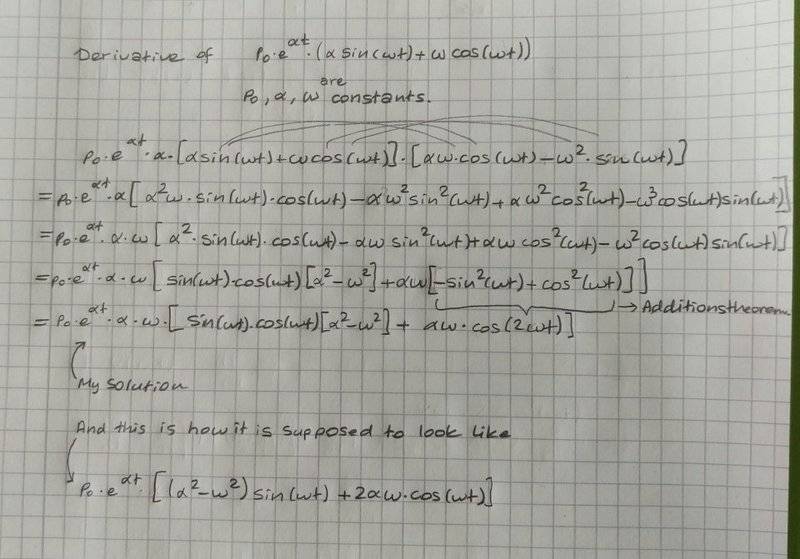 Derivative of p₀·e^αt·(α sin(ωt) + ω cos(ωt))
p₀, α, ω are constants.
p₀·e^αt·α·[α sin(ωt) + ω cos(ωt)]·[αω·cos(ωt) − ω²·sin(ωt)]
= p₀·e^αt·α[α²ω·sin(ωt)·cos(ωt) − αω² sin²(ωt) + αω² cos²(ωt) − ω³ cos(ωt) sin(ωt)]
= p₀·e^αt·α·ω[α²·sin(ωt)·cos(ωt) − αω sin²(ωt) + αω cos²(ωt) − ω² cos(ωt) sin(ωt)]
= p₀·e^αt·α·ω[sin(ωt)·cos(ωt)[α² − ω²] + αω[−sin²(ωt) + cos²(ωt)]]
→ Additionstheorem
= p₀·e^αt·α·ω·[sin(ωt)·cos(ωt)[α² − ω²] + αω·cos(2ωt)]
My solution
And this is how it is supposed to look like
p₀·e^αt·[(α² − ω²) sin(ωt) + 2αω·cos(ωt)]